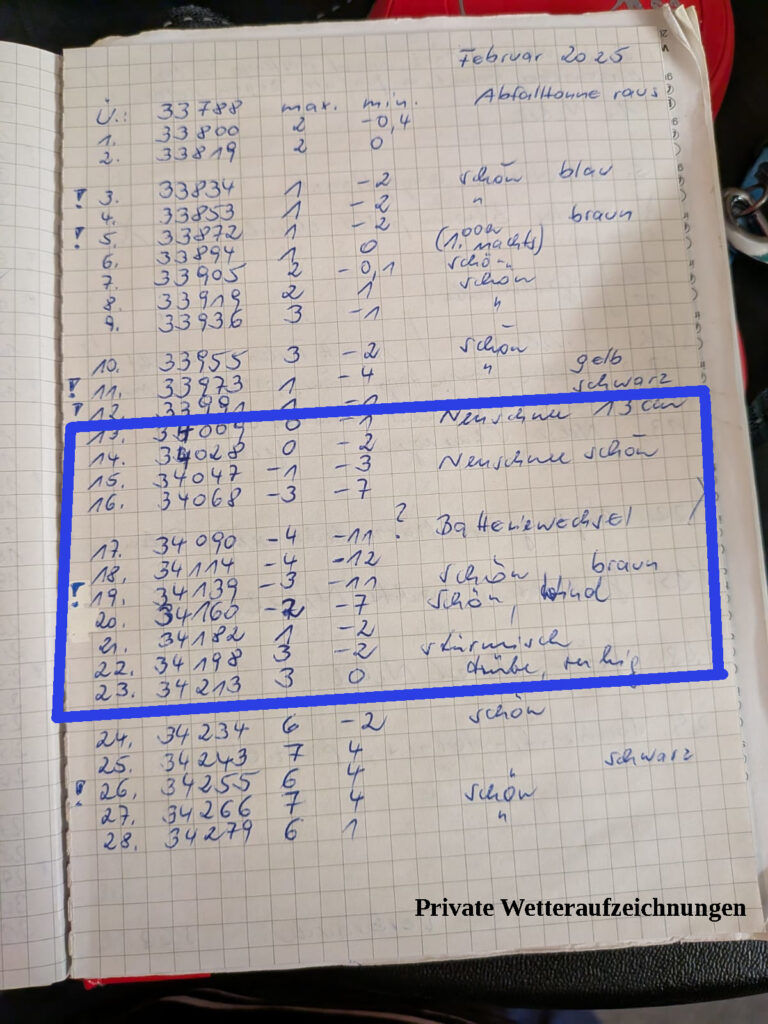 Februar 2025
Ü.: 33788 max. min. Abfalltonne raus
1. 33800 2 -0,4
2. 33819 2 0
! 3. 33834 1 -2 schön blau
4. 33853 1 -2 "
! 5. 33872 1 -2 braun
6. 33894 1 0 (1. nachts)
7. 33905 2 -0,1 schön
8. 33919 2 1 schön
9. 33936 3 -1 "
10. 33955 3 -2 schön
! 11. 33973 1 -4 " gelb
! 12. 33991 1 -1 schwarz
13. 34009 0 -1 Neuschnee 13 cm
14. 34028 0 -2
15. 34047 -1 -3 Neuschnee schön
16. 34068 -3 -7
17. 34090 -4 -11 ? Batteriewechsel
18. 34114 -4 -12
! 19. 34139 -3 -11 schön braun
20. 34160 -2 -7 schön, Wind
21. 34182 1 -2
22. 34198 3 -2 stürmisch
23. 34213 3 0 trübe, ruhig
24. 34234 6 -2 schön
25. 34243 7 4
! 26. 34255 6 4 " schwarz
27. 34266 7 4 schön
28. 34279 6 1 "
Private Wetteraufzeichnungen